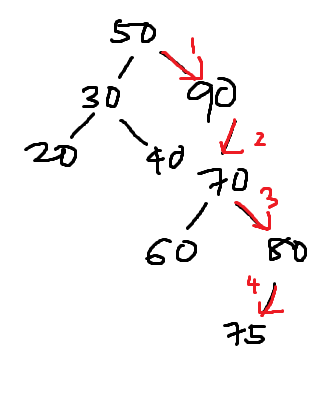 50 1
30 90
2
20 40 70
3
60 80
4
75